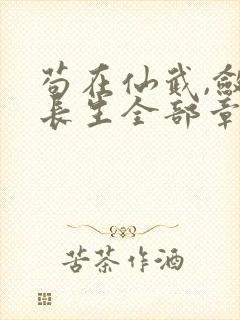 苟在仙武,敛
长生全部章
苦茶作酒